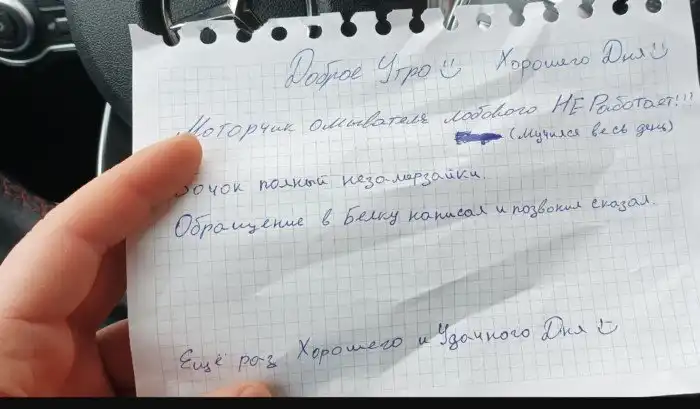 Доброе Утро Хорошего Дня
Моторчик омывателя лобового НЕ Работает!!!
(мучился весь день)
Бачок полный незамерзайки.
Обращение в Белку написал и позвонил сказал.
Ещё раз Хорошего и Удачного Дня